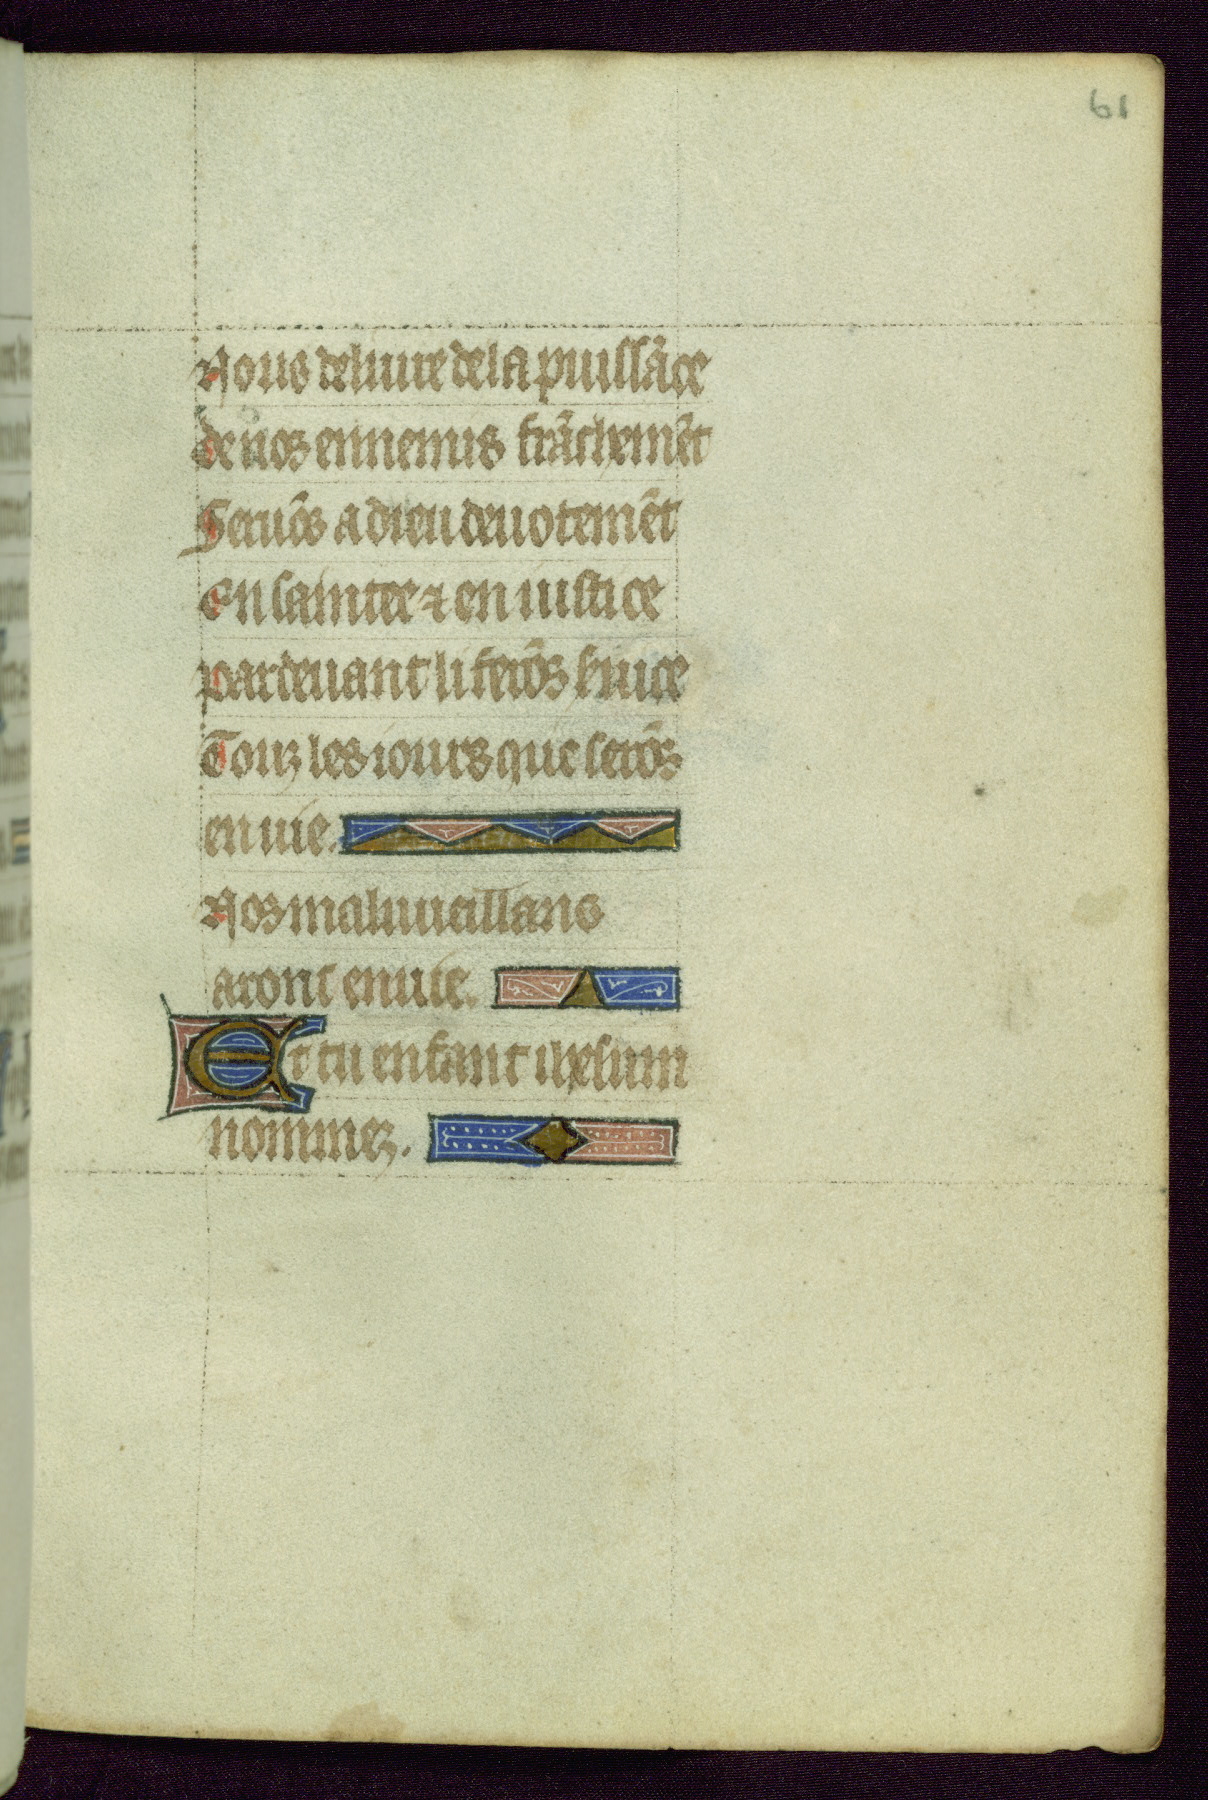 61
Nous deliure de la puissãce
de nos ennemis frãchemẽt
Seruõs a dieu deuotemẽt
En saintee ⁊ en iustice
par deuant li ferõs seruice
Touz les iours que serõs
en uie.
Nos malvueillans
aront enuie.
Et tu enfant ihesum
nommez.